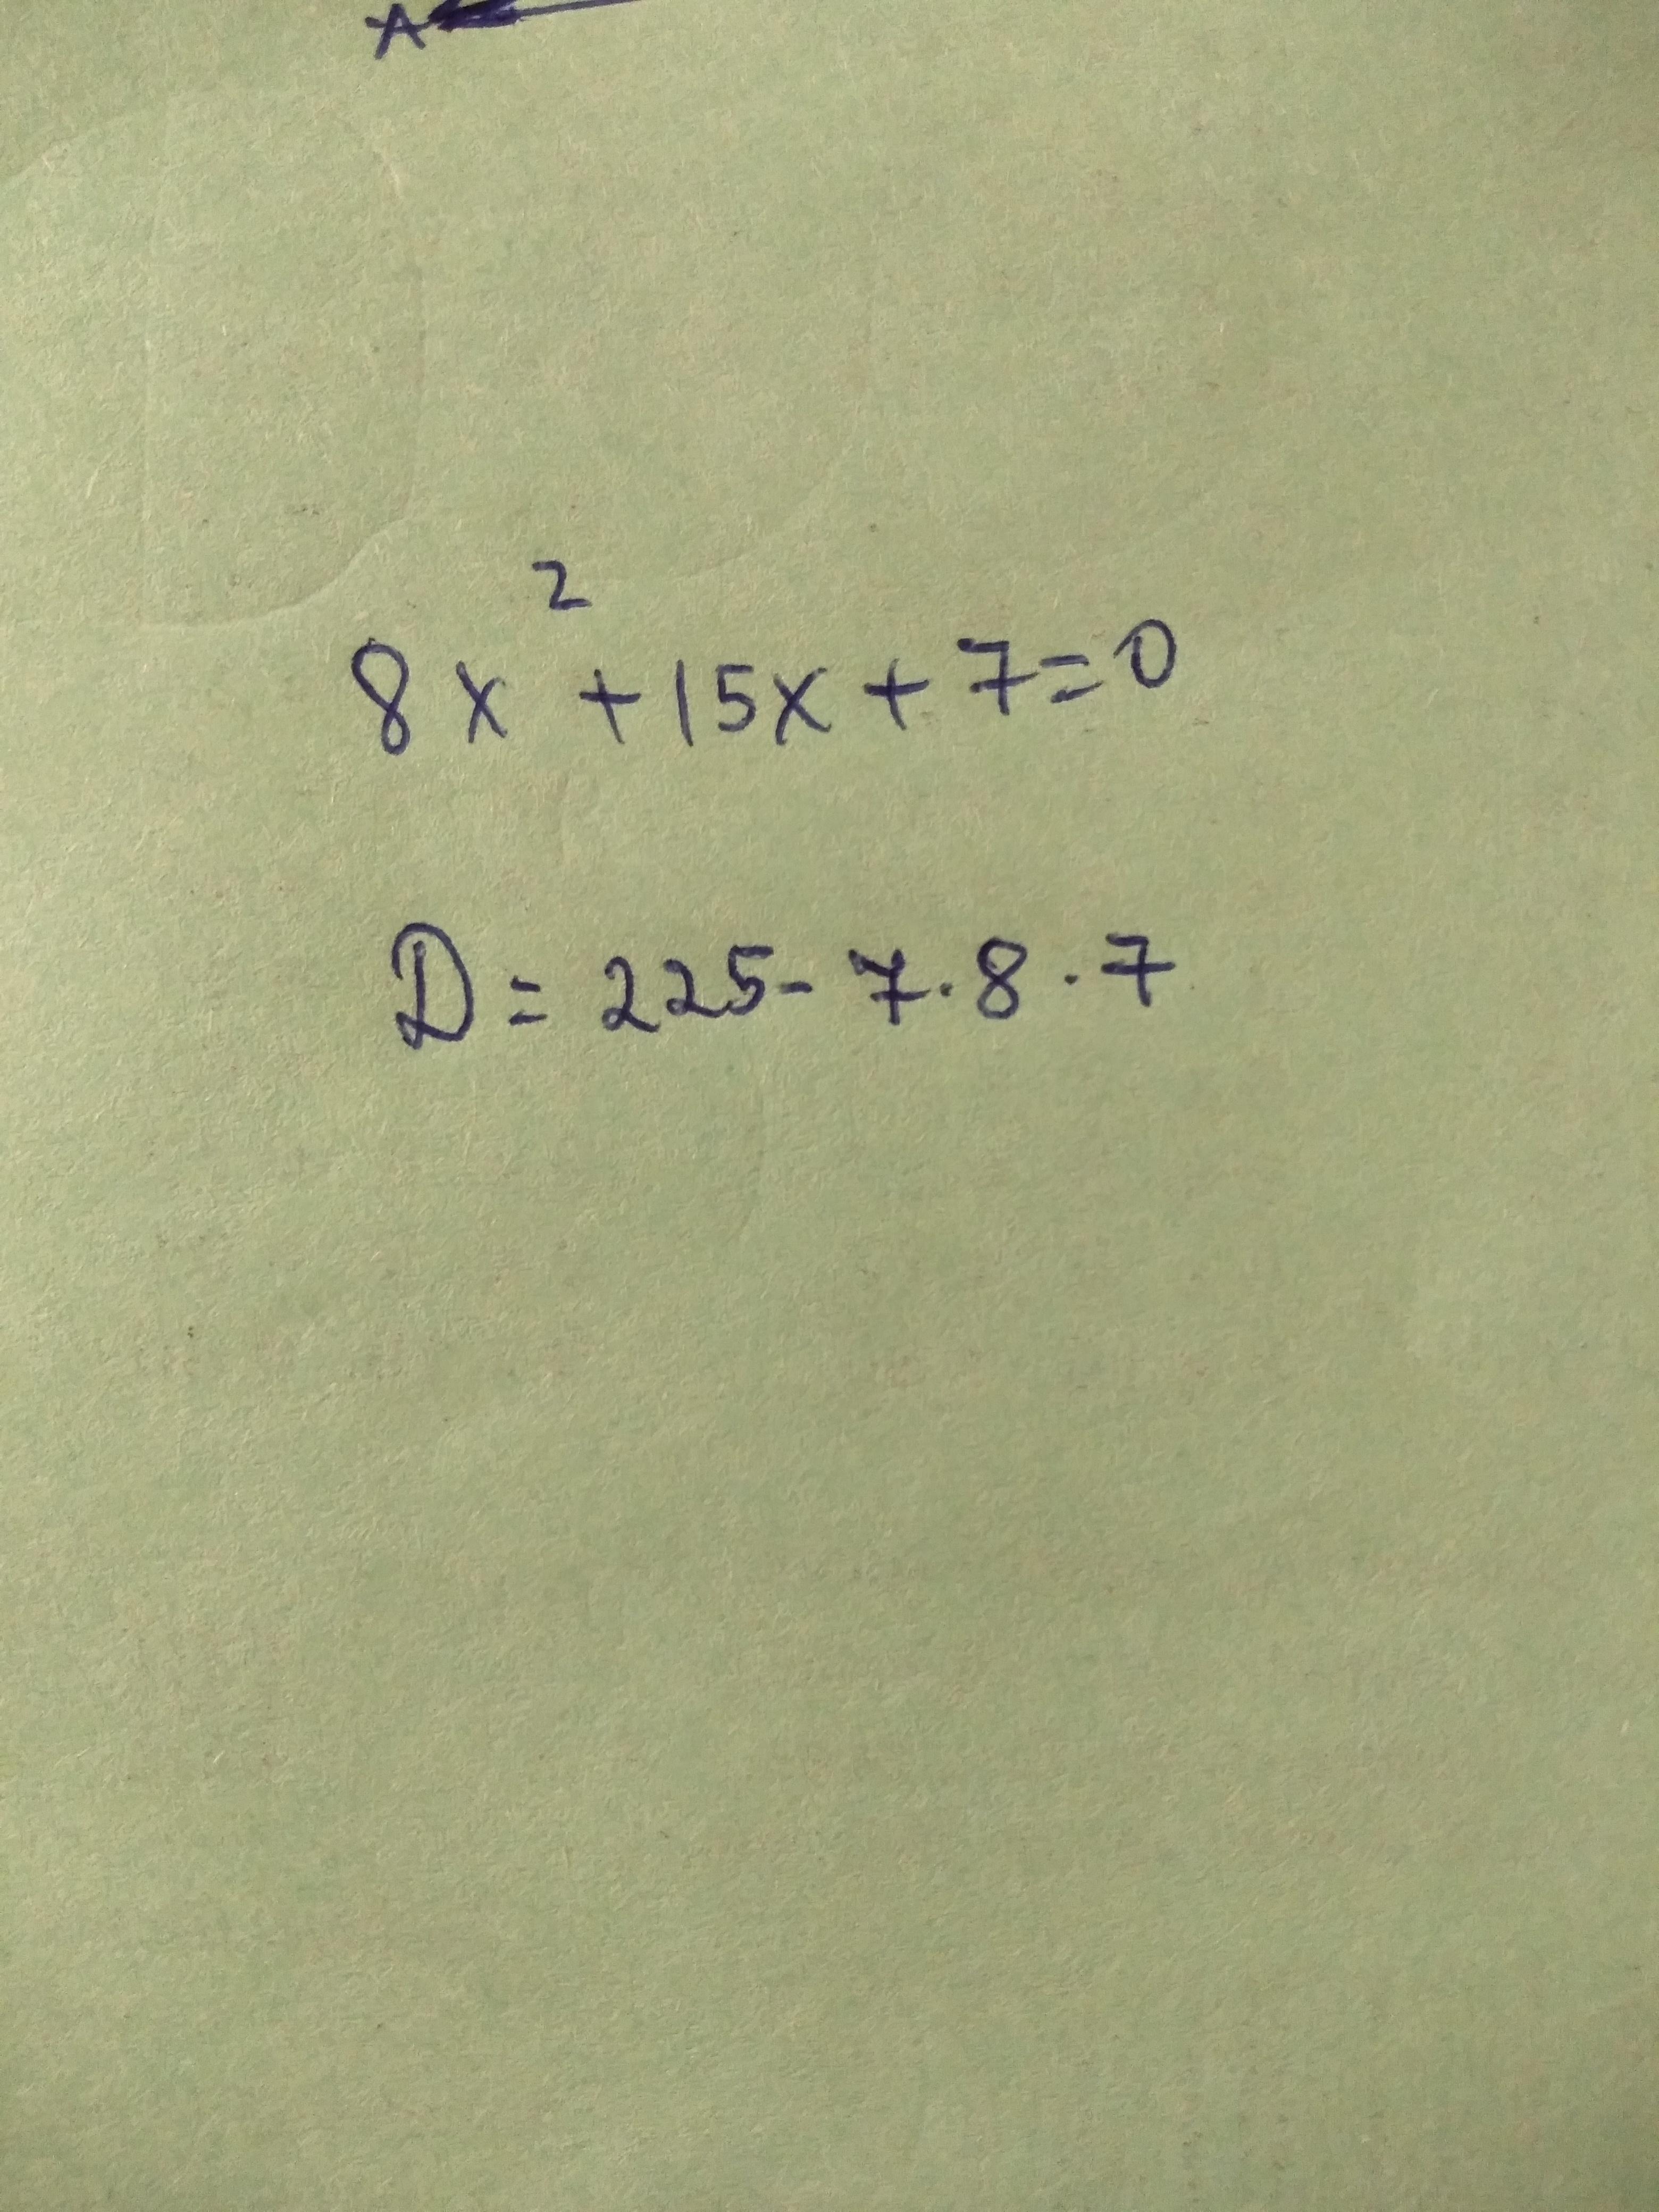 A
8x² + 15x + 7 = 0
D = 225 - 7 · 8 · 7